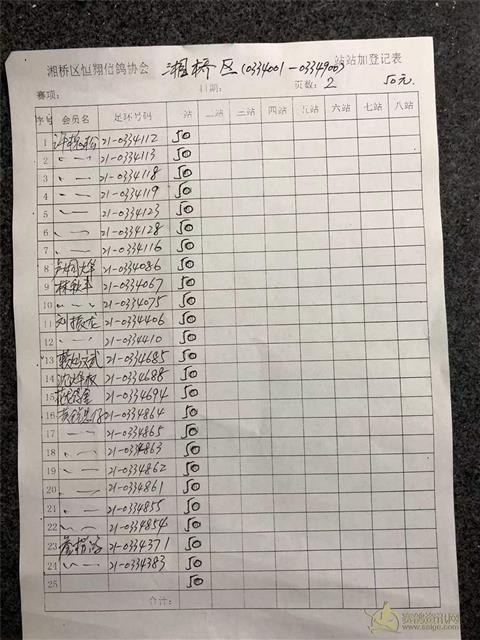 湘桥区恒翔信鸽协会 湘桥区(0334001-0334900) 站站加登记表
赛项: 日期: 页数: 2 50元.
序号 会员名 足环号码 一站 二站 三站 四站 五站 六站 七站 八站
1 21-0334112 50
2 〃 — 21-0334113 50
3 〃 — 21-0334118 50
4 〃 — 21-0334119 50
5 〃 — 21-0334123 50
6 〃 — 21-0334128 50
7 〃 — 21-0334116 50
8 21-0334086 50
9 21-0334067 50
10 〃 — 21-0334075 50
11 刘振龙 21-0334406 50
12 〃 — 21-0334410 50
13 21-0334685 50
14 21-0334688 50
15 21-0334694 50
16 21-0334864 50
17 〃 — 21-0334865 50
18 〃 — 21-0334863 50
19 〃 — 21-0334862 50
20 〃 — 21-0334861 50
21 〃 — 21-0334855 50
22 〃 — 21-0334854 50
23 21-0334371 50
24 〃 — 21-0334383 50
25 50
合计:
赛鸽资讯网
www.saige.com